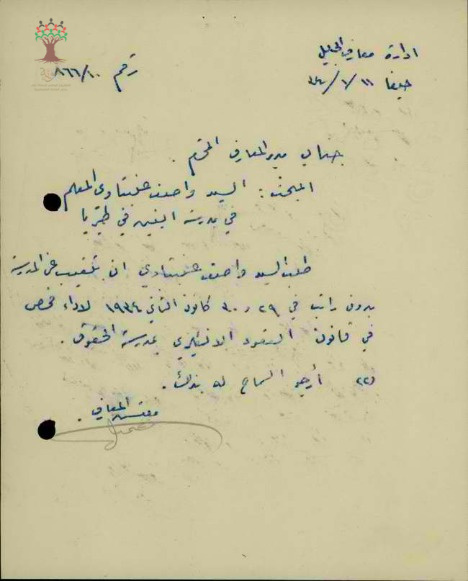 ادارة معارف الجليل
حيفا
رقم ٨٦٦/١٠
جناب مدير المعارف المحترم
المبحث : السيد واصف عنبتاوي المعلم
في مدرسة البنين في طبريا
طلب السيد واصف عنبتاوي ان يتغيب عن المدرسة
بدون راتب في ٢٩ و ٣٠ كانون الثاني ١٩٣٤ لاداء فحص
في قانون العقود الانكليزي بمدرسة الحقوق .
(٢) أرجو السماح له بذلك .
مفتش المعارف .